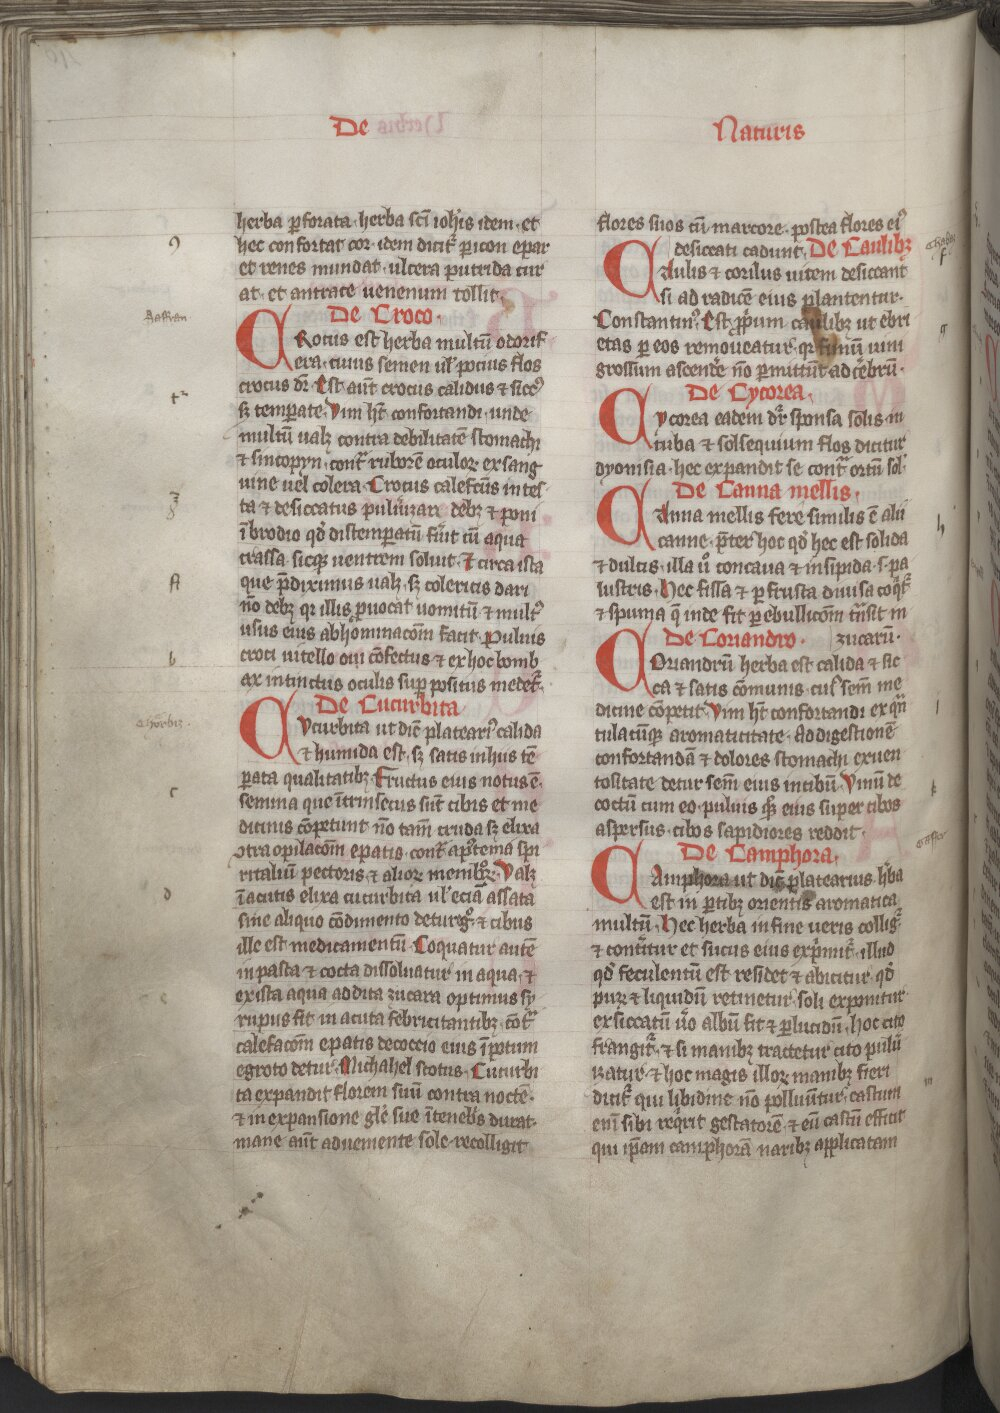 De
Naturis
herba ꝑforata · herba sc̄i ioh̄is idem · et
hec confortat cor · idem dicit̄ ꝑicon epar
et renes mundat · ulcera putrida cur
at · et antrace uenenum tollit ·
De Croco ·
CRocus est herba multū odorif
era · cuius semen ul̄ pocius flos
crocus dr̄ · Est aūt crocus calidus ⁊ siccꝰ
sꝫ temperate · Vim hꝫ confortandi · unde
multū ualꝫ contra debilitatē stomachi
⁊ sincopyn · cont̄ ruborē oculoꝝ ex sang
uine uel colera · Crocus calefc̄us in tes
ta ⁊ desiccatus puluizare debꝫ ⁊ poni
ī brodio qd̄ distemperatū fu̾it cū aqua
crassa · sicqꝫ uentrem soluit · Et circa ista
que p̄diximus ualꝫ · sꝫ colericis dari
nō debꝫ qꝛ illis ꝓuocat uomitū ⁊ multꝰ
usus eius abhominacōm facit · Puluis
croci uitello oui cōfectus ⁊ ex hoc bomb
ax intinctus oculis suꝑ positus medet̄ ·
De Cucurbita
CVcurbita ut dic̄ platearīꝰ calida
⁊ humida est · sꝫ satis in hiis tē
ꝑata qualitatibꝫ · Fructus eius notus ē ·
semina que ītrinsecus sūt cibis et me
dicinis cōpetunt · nō tam̄ cruda sꝫ elixa
ꝯtra opilacōm epatis · cont̄ apᵒtema spi
ritaliū pectoris · ⁊ alioꝝ membroꝝ · Valꝫ
ī acutis elixa cucurbita ul̄ eciā assata
sine aliquo cōdimento detur gͦ · ⁊ cibus
ille est medicamentū · Coquatur autē
in pasta ⁊ cocta dissoluatur in aqua · ⁊
ex ista aqua addita zucara optimus sy
rupus fit in acuta febricitantibꝫ · cōt̄
calefacōm epatis decoccio eius ī potum
egroto detur · Michahel scotus · Cucurbi
ta expandit florem suū contra noctē ·
⁊ in expansione gl̄e sue ī tenebs̄ durat ·
mane aūt adueniente sole · recolligit
flores suos cū marcore · postea flores eiꝰ
desiccati cadunt · De Caulibꝫ
CAulis ⁊ corilus uitem desiccant
si ad radicē eius plantentur ·
Constantinꝰ · Est ꝓp̄um caulibꝫ ut ebri
etas ꝑ eos remoueatur · qꝛ fumū uini
grossum ascende̾ nō ꝑmittūt ad ce̾brū ·
De Cycorea ·
CYcorea eadem dr̄ sponsa solis · in
tuba ⁊ solsequium flos dicitur
dyonisia · hec expandit se cont̄ ortū sol̄
De Canna mellis ·
CAnna mellis fere similis ē alii
canne · p̄ter hoc qd̄ hec est solida
⁊ dulcis · illa uͦ concaua ⁊ insipida · s · pa
lustris · Hec fissa ⁊ ꝑ frusta diuisa coq̄t̄
⁊ spuma q̄ inde fit ꝑ ebullicōm tn̄sit in
De Coriandro · zucarū ·
COriandrū herba est calida ⁊ sic
ca ⁊ satis cōmunis · cuīꝰ sem̄ me
dicine cōpetit · Vim hꝫ confortandi ex qn̄
tulacūqꝫ aromaticitate · Ad digestionē
confortandā ⁊ dolores stomachi ex uen
tositate detur sem̄ eius in cibū · Vinū de
coctū cum eo · puluis qꝫ eius super cibos
aspersus · cibos sapidiores reddit ·
De Camphora ·
CAmphora ut dic̄ platearius h̾ba
est in ꝑtibꝫ orientis aromatica
multū · Hec herba in fine ueris collig̾
⁊ conte̾itur et sucus eius exp̄mit̄ · illud
qd̄ feculentū est residet ⁊ abicitur · qd̄
purꝫ ⁊ liquidū retinetur · soli exponitur
exsiccatū uͦo albū fit ⁊ ꝑlucidū · hoc cito
frangit̄ · ⁊ si manibꝫ tractetur cito pulu̾
izatur · ⁊ hoc magis illoꝝ manibꝫ fieri
dicit̄ qui libidine nō polluūtur · castum
eni̅ sibi req̄rit gestatorē · ⁊ eū castū efficit
qui ip̄am camphorā naribꝫ applicatam